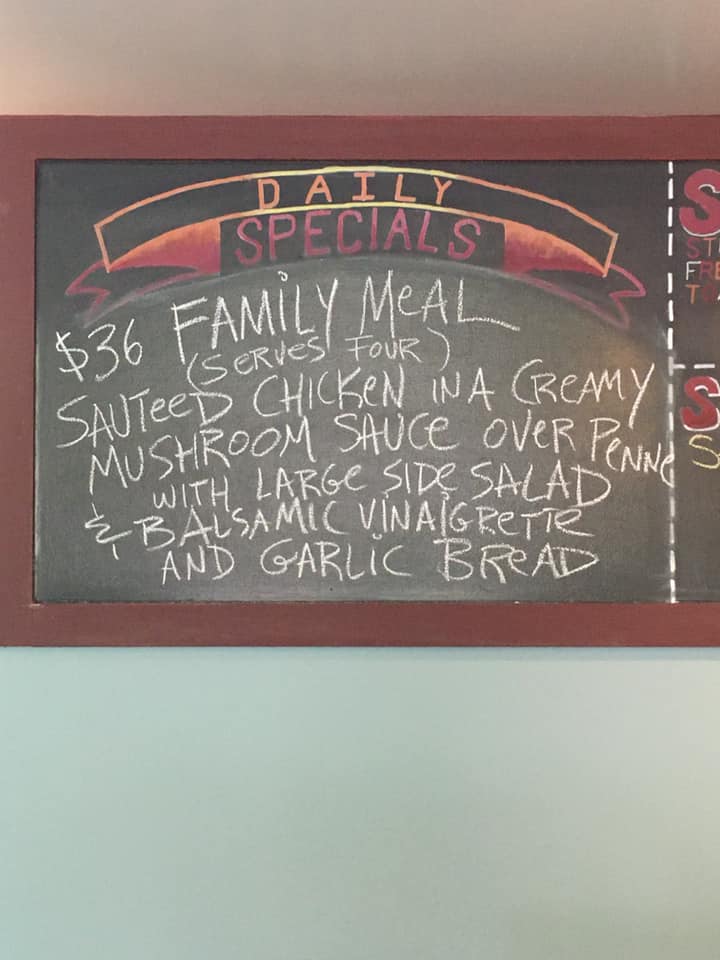 DAILY
SPECIALS
$36 FAMILY MEAL
(SERVES FOUR)
SAUTEED CHICKEN IN A CREAMY
MUSHROOM SAUCE OVER PENNE
WITH LARGE SIDE SALAD
& BALSAMIC VINAIGRETTE
AND GARLIC BREAD